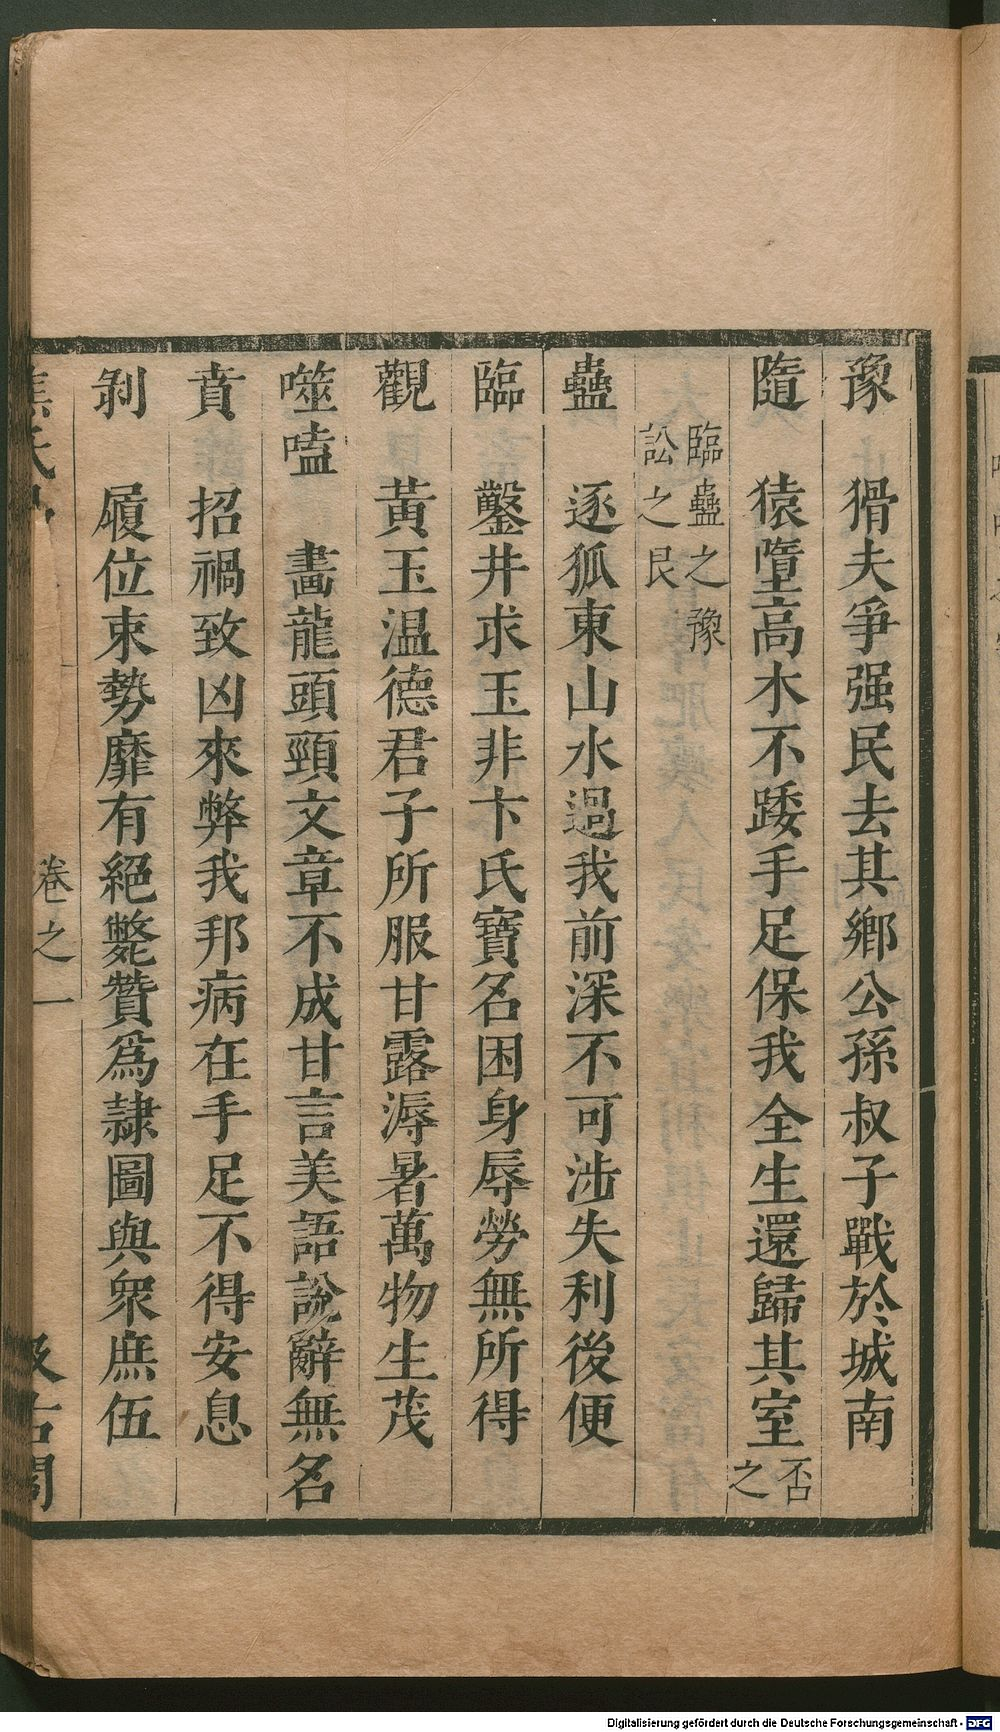 豫 猾夫爭强民去其鄉公孫叔子戰於城南
隨 猿墮高木不踒手足保我全生還歸其室否之
臨蠱之豫
訟之艮
蠱 逐狐東山水過我前深不可涉失利後便
臨 鑿井求玉非卞氏寶名困身辱勞無所得
觀 黃玉温德君子所服甘露溽暑萬物生茂
噬嗑 畫龍頭頸文章不成甘言美語說辭無名
賁 招禍致凶來弊我邦病在手足不得安息
剝 履位束勢靡有絕斃贊爲隷圖與衆庶伍
焦氏易
卷之一
汲古閣
Digitalisierung gefördert durch die Deutsche Forschungsgemeinschaft - DFG